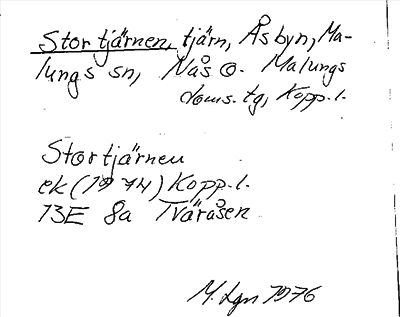 Stortjärnen, tjärn, Åsbyn, Ma-
lungs sn, Nås o. Malungs
doms. tg, Kopp. l.
Stortjärnen
ek (1974) Kopp. l.
13E 8a Tväråsen
M. Lgn 1976